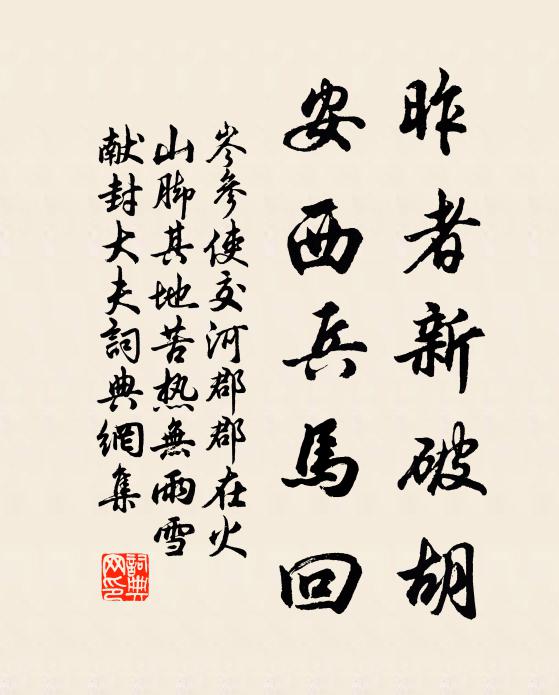 昨者新破胡
安西兵馬回
岑參使交河郡郡在火
山脚其地苦热無雨雪
献封大夫詞典網集
詞典网印